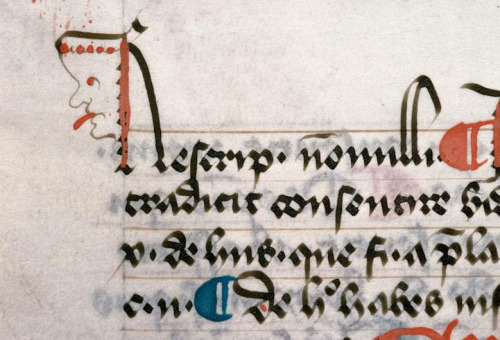 Rescrip. nōnulli ¶
tradicit consentire
v. de hiis. que f. a p̄la
c. n. ¶ de hͦ habes inf